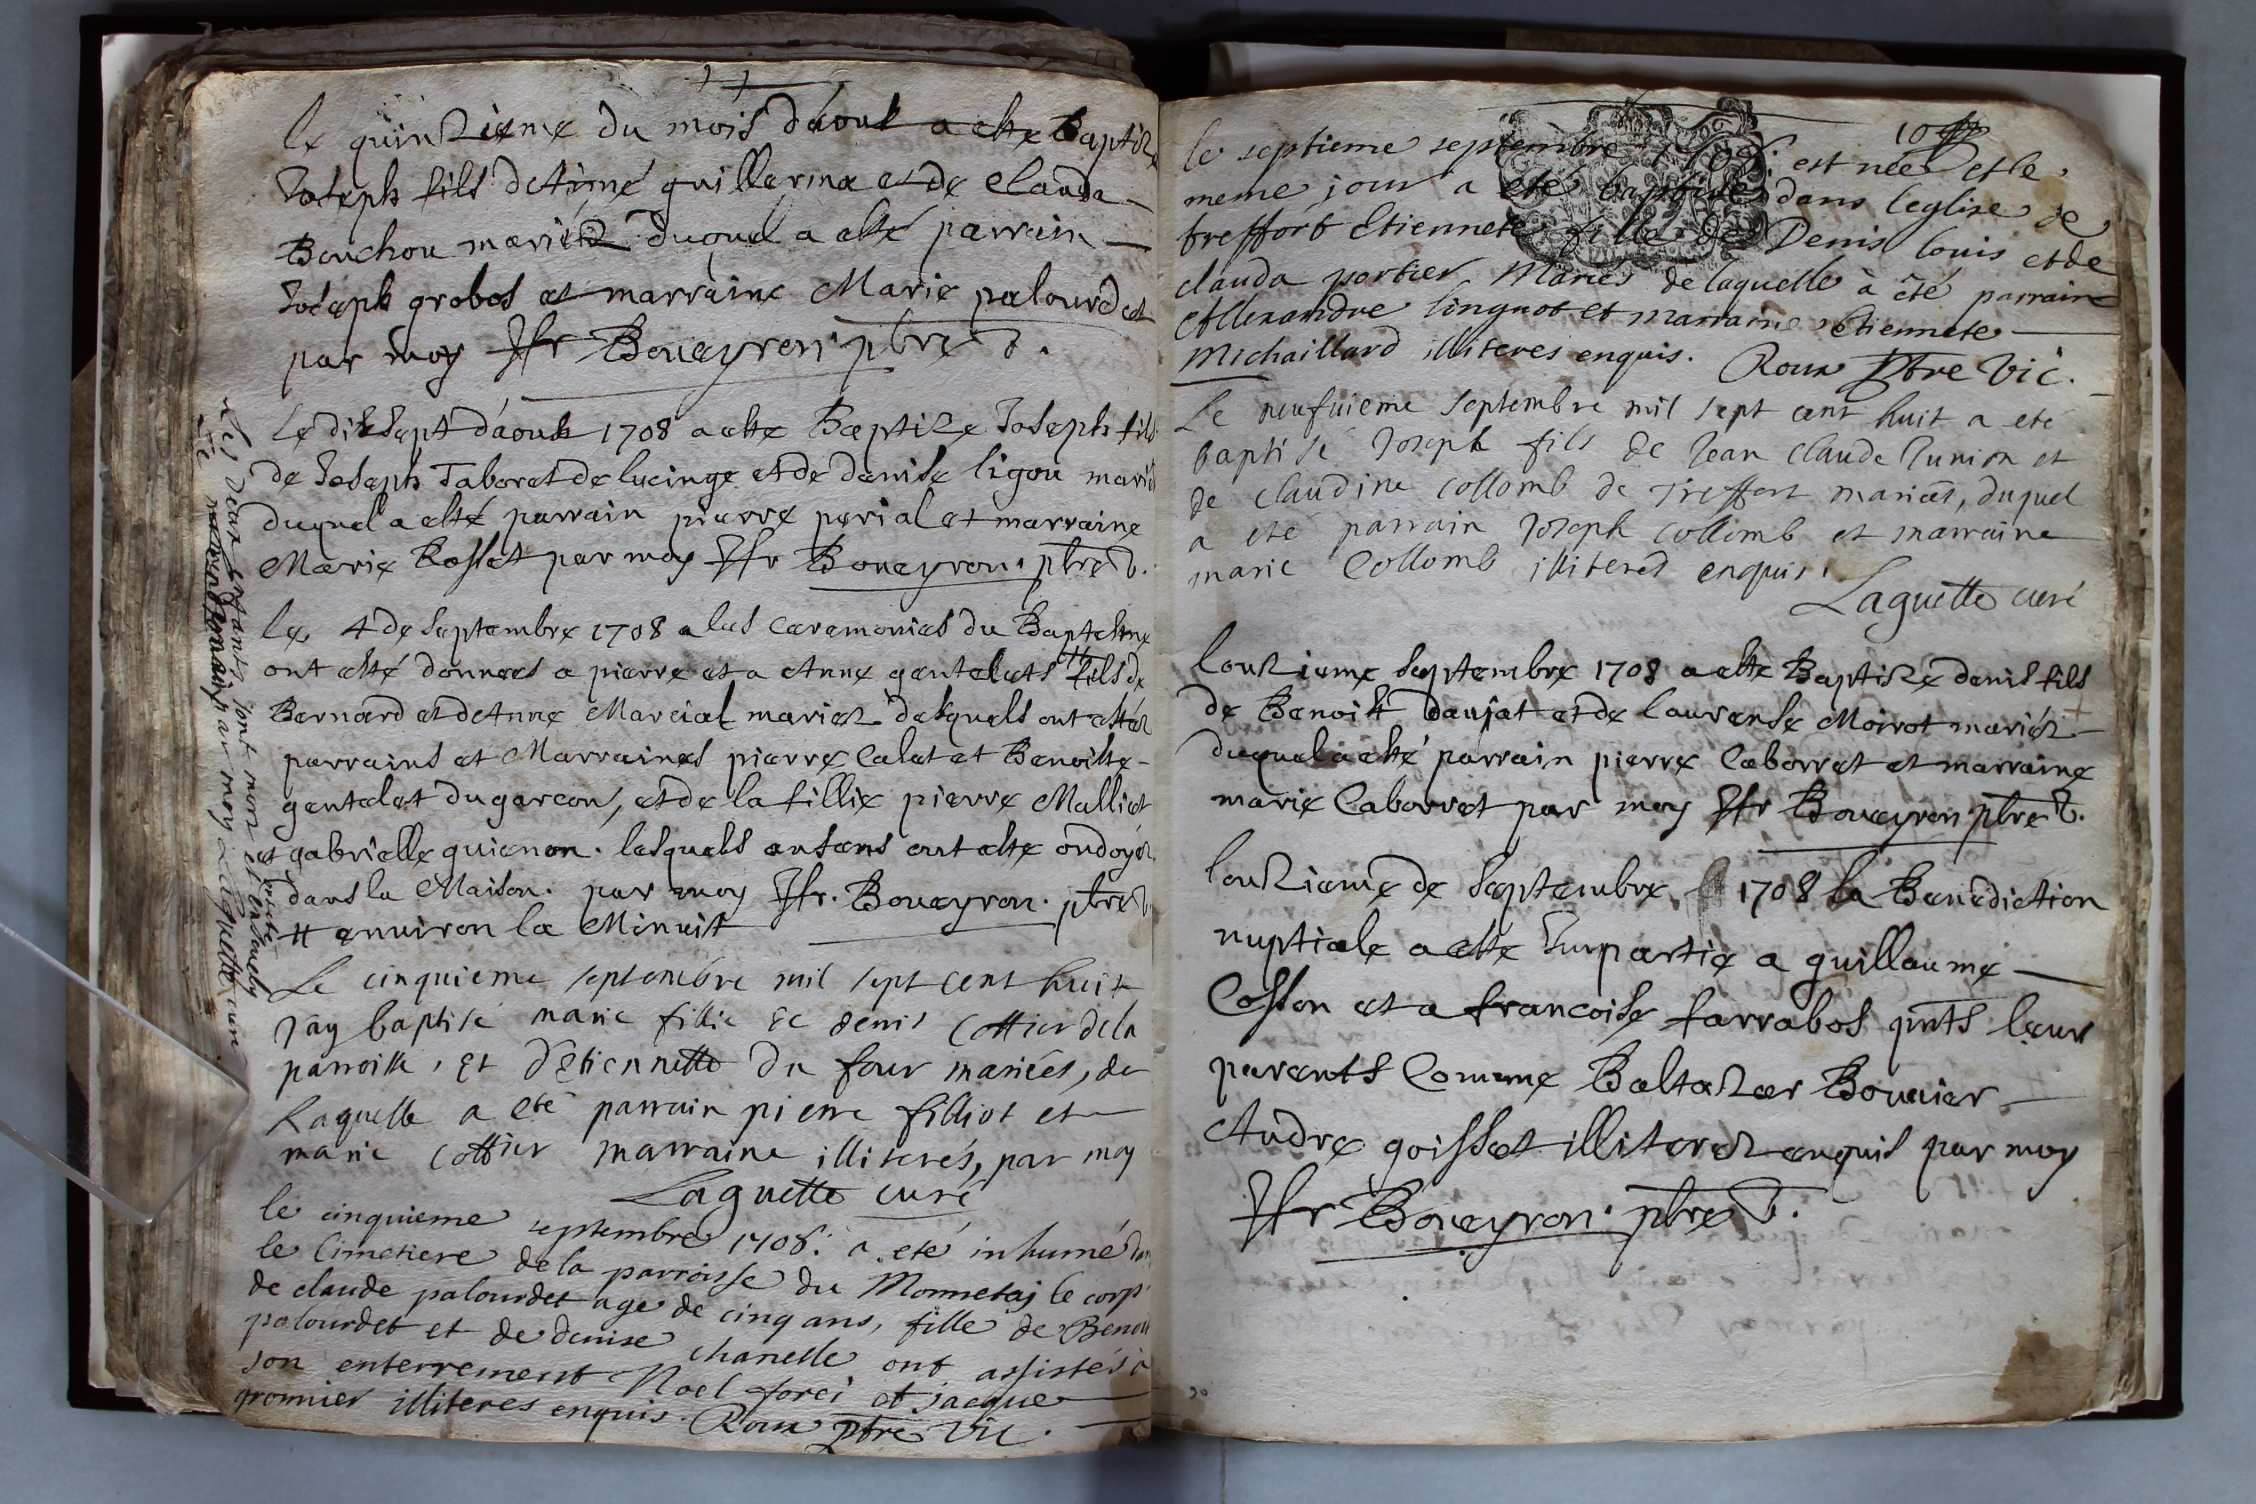 le quinzieme du mois d'aoust a esté Baptizé
Joseph fils d'Aimé guillermx et de Clauda
Bouchou mariéz duquel a esté parrain
Joseph grobos et marraine Marie palourdet
par moy Jfr Boueyron ptre v.
Le dix sept d'aoust 1708 a esté Baptizé Joseph fils
de Joseph Taboret de lucinge et de denise ligou mariés
duquel a esté parrain pierre perial et marraine
Marie Rosset par moy Jfr Boueyron ptre v.
Le 4 de septembre 1708 a les ceremonies du Baptesme
ont esté donnees a pierre et a Anne gentelets # fils de
Bernard et d'Anne Marcial mariez desquels ont estéz
parrains et Marraines pierre Calet et Benoiste
gentelet du garcon, et de la fillie pierre Malliet
et gabrielle guienon. lesquels enfans ont esté ondoyéz
dans la Maison. par moy Jfr. Boueyron. ptre v.
# enuiron la Minuit
les deux enfants sont mort et
par moy Laguette curé
Le cinquieme septembre mil sept cent huit
j'ay baptisé marie fillie de denis Cottier de la
parroisse, et d'Etiennette Du four mariées, de
Laquelle a eté parrain pierre filliot et
marie Cottier marraine illiterés, par moy
Laguette curé
le cinquieme septembre 1708. a eté inhumé dan
le Cimetiere de la parroisse du Monnetaj le corp
de claude palourdet age de cinq ans, fille de Benoit
palourdet et de denise chanelle ont assistés à
son enterrement Noel forei et jacque
gromier illiteres enquis. Roux ptre vic.
10
le septieme septembre 1708. est née et le
meme jour a eté baptisée dans l'eglise de
treffort Etiennete fille de Denis louis et de
clauda portier Maries de laquelle à été parrain
Allexandre linguot et marraine etiennete
Michaillard illiteres enquis. Roux Ptre Vic.
Le neufuieme septembre mil sept cent huit a eté
baptisé Joseph fils de Jean Claude Junion et
de Claudine Collomb de Treffort mariées, duquel
a eté parrain Joseph Collomb et marraine
marie Collomb illiterés enquis.
Laguette curé
l'onzieme septembre 1708 a esté Baptizé denis fils
de Benoist daujat et de laurense Moirot mariéz
duquel a esté parrain pierre Caborret et marraine
marie Caborret par moy Jfr Boueyron ptre v.
l'onzieme de septembre 1708 la Benediction
nuptiale a esté Impartie a guillaume
Cosson et a francoise farrabos pnts leur
parents Comme Baltazar Bouuier
Andre goisset illiterez enquis par moy
Jfr Boueyron. ptre v.